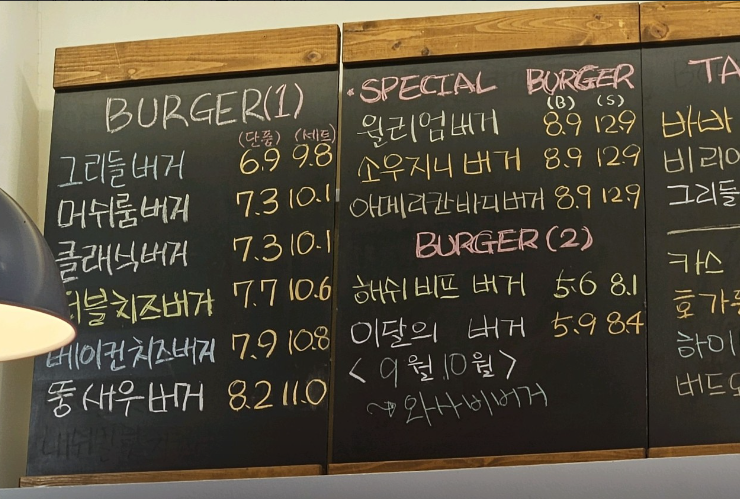 BURGER(1)
(단품) (세트)
그리들버거 6.9 9.8
머쉬룸버거 7.3 10.1
클래식버거 7.3 10.1
더블치즈버거 7.7 10.6
베이컨치즈버거 7.9 10.8
뚱새우버거 8.2 11.0
*SPECIAL BURGER
(B) (S)
윌리엄버거 8.9 12.9
소우지니버거 8.9 12.9
아메리칸바디버거 8.9 12.9
BURGER(2)
해쉬비프 버거 5.6 8.1
이달의 버거 5.9 8.4
<9월10월>
~와사비버거
TA
바바
비리아
그리들
카스
호가든
하이
버드와